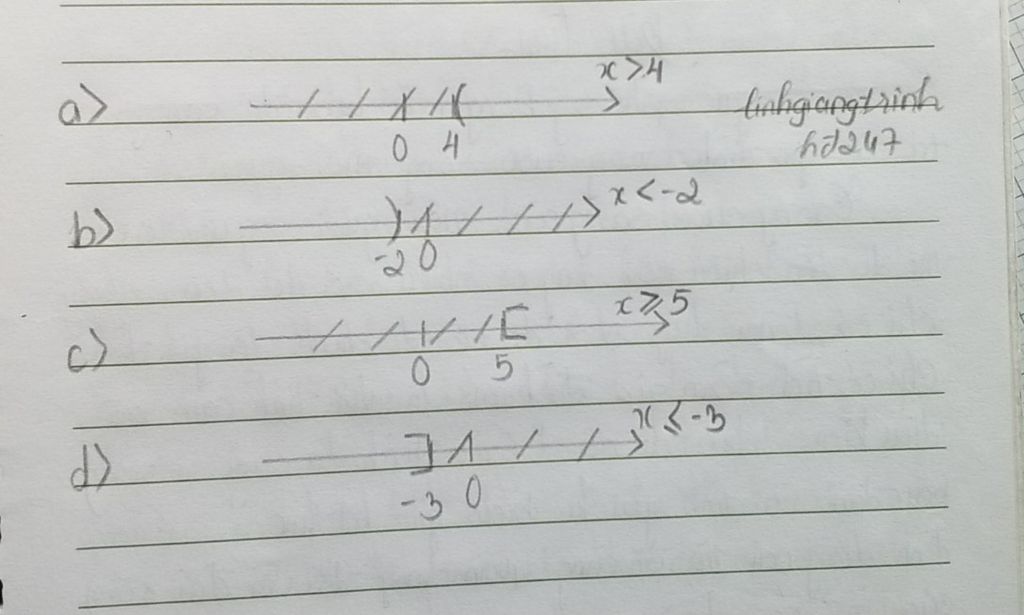 a) x>4
0 4
linhgiangtrinh
hd247
b) x<-2
-2 0
c) x⩾5
0 5
d) x⩽-3
-3 0